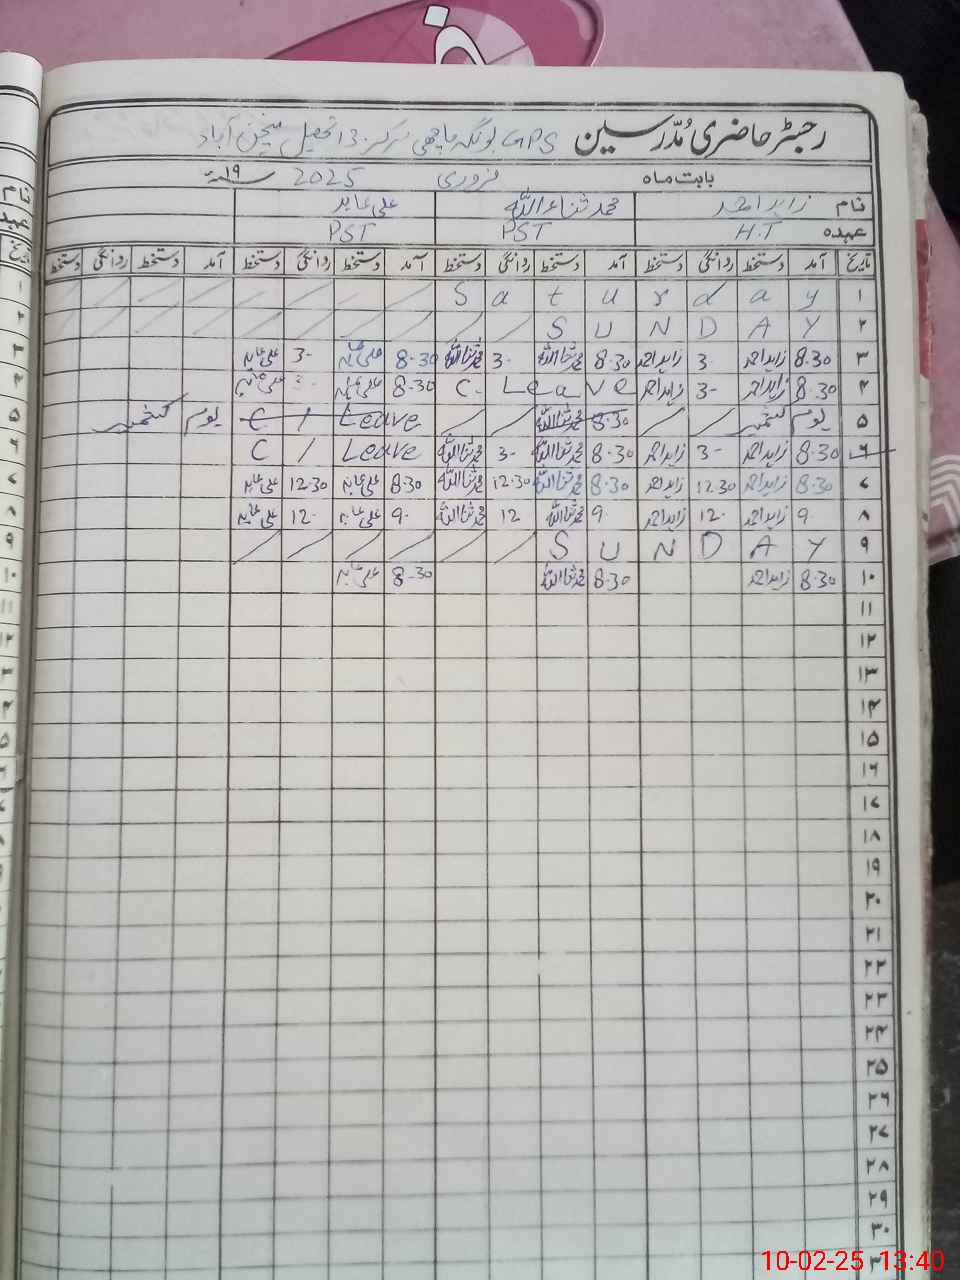 رجسٹر حاضری مُدّرسین GPS بونگہ ماچھی مرکز 13 تحصیل منچن آباد
بابت ماہ فروری 2025 ۱۹ء
نام زاہد احمد محمد ثناءاللہ علی عابد
عہدہ H.T PST PST
تاریخ آمد دستخط روانگی دستخط آمد دستخط روانگی دستخط آمد دستخط روانگی دستخط آمد دستخط روانگی دستخط
۱ S a t u r d a y
۲ S U N D A Y
۳ 8.30 زاہد احمد 3- زاہد احمد 8.30 محمد ثناءاللہ 3- محمد ثناءاللہ 8.30 علی عابد 3- علی عابد
۴ 8.30 زاہد احمد 3- زاہد احمد C. Leave 8.30 علی عابد علی عابد
۵ یوم کشمیر 8.30 محمد ثناءاللہ C / Leave یوم کشمیر
۶ 8.30 زاہد احمد 3- زاہد احمد 8.30 محمد ثناءاللہ 3- محمد ثناءاللہ C / Leave
۷ 8.30 زاہد احمد 12.30 زاہد احمد 8.30 محمد ثناءاللہ 12.30 محمد ثناءاللہ 8.30 علی عابد 12.30 علی عابد
۸ 9. زاہد احمد 12. زاہد احمد 9. محمد ثناءاللہ 12 محمد ثناءاللہ 9. علی عابد 12. علی عابد
۹ S U N D A Y
۱۰ 8.30 زاہد احمد 8.30 محمد ثناءاللہ 8.30 علی عابد
۱۱
۱۲
۱۳
۱۴
۱۵
۱۶
۱۷
۱۸
۱۹
۲۰
۲۱
۲۲
۲۳
۲۴
۲۵
۲۶
۲۷
۲۸
۲۹
۳۰
10-02-25 13:40